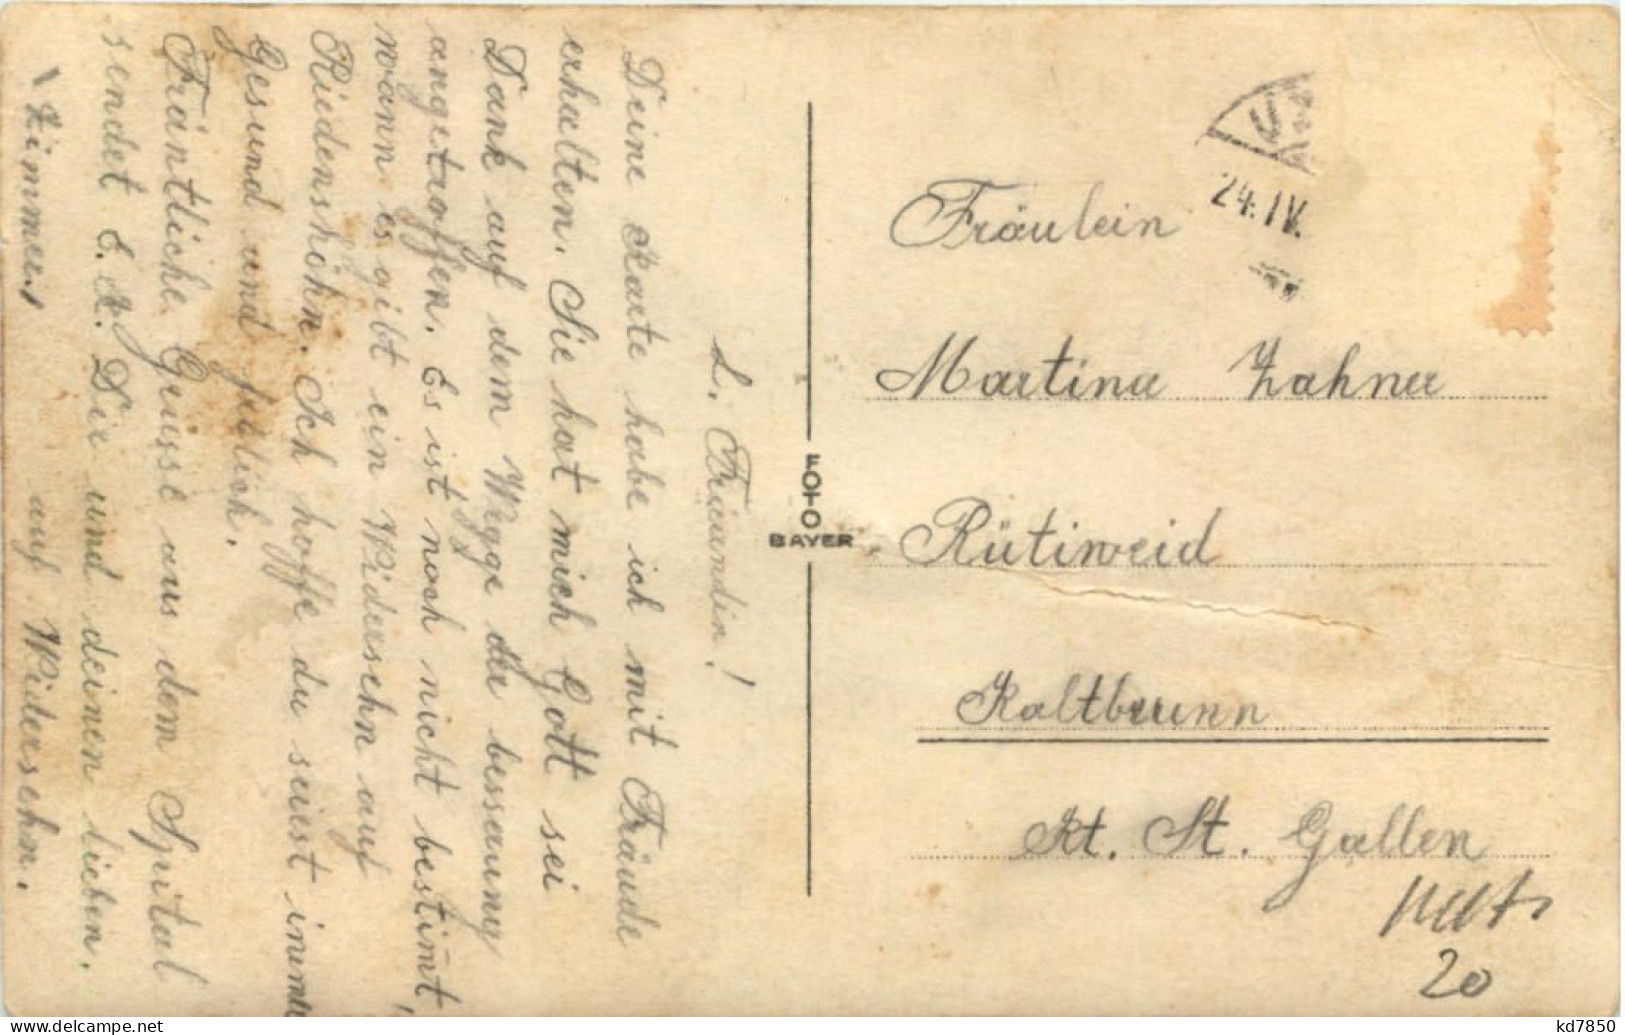 L. Fräundin!
Deine Karte habe ich mit Fräude
erhalten. Sie hat mich Gott sei
Dank auf dem Wege der bessaung
angetroffen. Es ist noch nicht bestimt,
wann es gibt ein Widersehn auf
Riedenshöhn. Ich hoffe du seiest immer
Gesund und frölich.
Fräntliche Grüsse aus dem Spital
sendet E. K. Dir und deinen lieben.
Zimmer,
auf Widersehn.
FOTO
BAYER
24. IV.
Fräulein
Martina Zahner
Rütiweid
Kaltbrunn
Kt. St. Gallen
20
kd7850